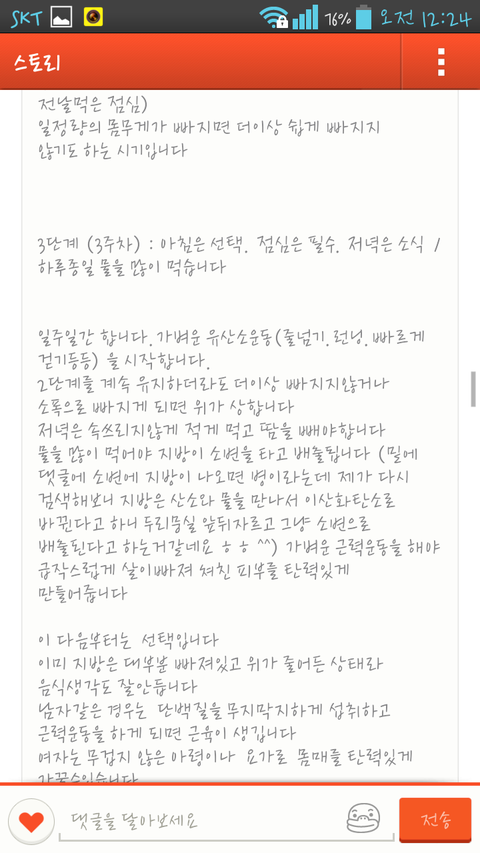 SKT 76% 오전 12:24
스토리
전날먹은 점심)
일정량의 몸무게가 빠지면 더이상 쉽게 빠지지
않기도 하는 시기입니다
3단계 (3주차) : 아침은 선택. 점심은 필수. 저녁은 소식 /
하루종일 물을 많이 먹습니다
일주일간 합니다. 가벼운 유산소운동(줄넘기.런닝.빠르게
걷기등등) 을 시작합니다.
2단계를 계속 유지하더라도 더이상 빠지지않거나
소폭으로 빠지게 되면 위가 상합니다
저녁은 속쓰리지않게 적게 먹고 땀을 빼야합니다
물을 많이 먹어야 지방이 소변을 타고 배출됩니다 (밑에
댓글에 소변에 지방이 나오면 병이라는데 제가 다시
검색해보니 지방은 산소와 물을 만나서 이산화탄소로
바뀐다고 하니 두리뭉실 앞뒤자르고 그냥 소변으로
배출된다고 하는거같네요 ㅎㅎ ^^) 가벼운 근력운동을 해야
급작스럽게 살이빠져 쳐진 피부를 탄력있게
만들어줍니다
이 다음부터는 선택입니다
이미 지방은 대부분 빠져있고 위가 줄어든 상태라
음식생각도 잘안듭니다
남자같은 경우는 단백질을 무지막지하게 섭취하고
근력운동을 하게 되면 근육이 생깁니다
여자는 무겁지 않은 아령이나 요가로 몸매를 탄력있게
가꿀수있습니다
댓글을 달아보세요 전송